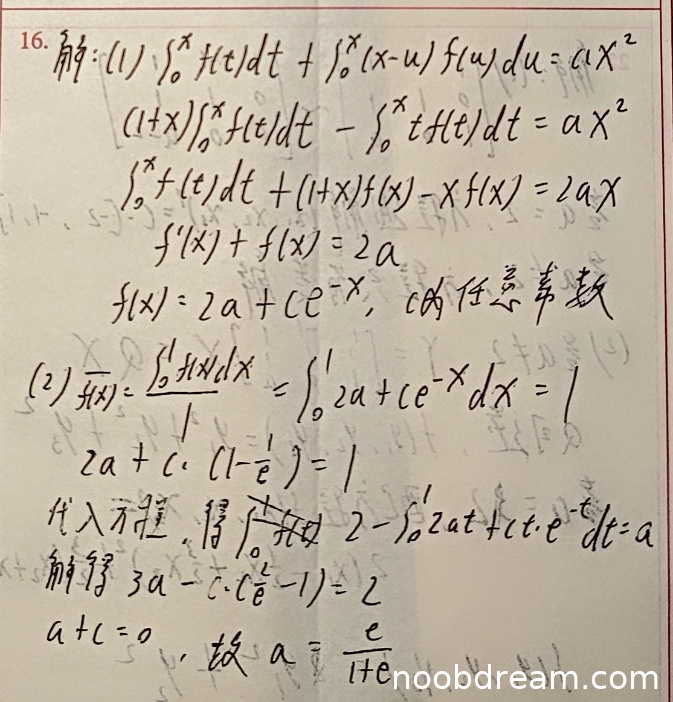 16. 解：(1) ∫₀ˣ f(t)dt + ∫₀ˣ(x-u)f(u)du = ax²
(1+x)∫₀ˣ f(t)dt - ∫₀ˣ tf(t)dt = ax²
∫₀ˣ f(t)dt + (1+x)f(x) - xf(x) = 2ax
f'(x) + f(x) = 2a
f(x) = 2a + ce⁻ˣ, c为任意常数
(2) f̅(x) = ∫₀¹ f(x)dx / 1 = ∫₀¹ 2a + ce⁻ˣ dx = 1
2a + c·(1 - 1/e) = 1
代入方程，得 ∫₀¹ f(t) 2 - ∫₀¹ 2at + ct·e⁻ᵗ dt = a
解得 3a - c·(2/e - 1) = 2
a + c = 0，故 a = e/(1+e)
noobdream.com